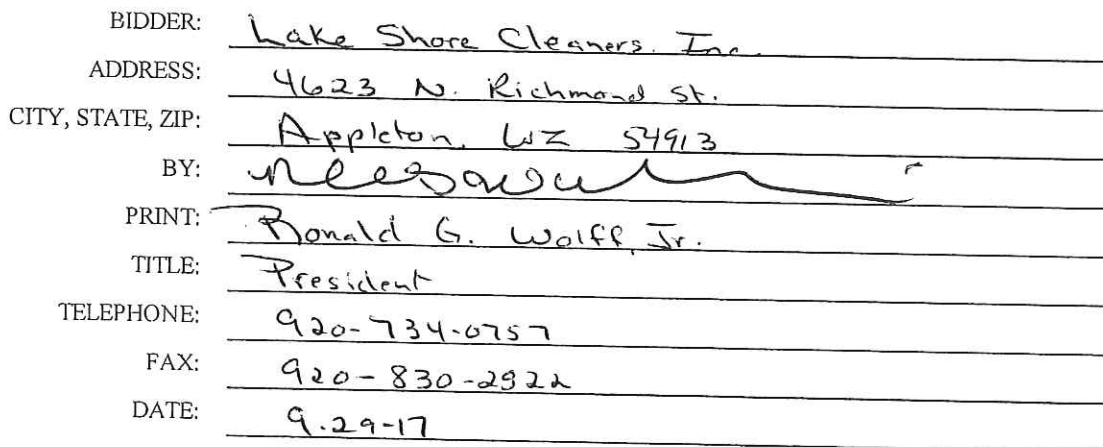 BIDDER: Lake Shore Cleaners, Inc.
ADDRESS: 4623 N. Richmond St.
CITY, STATE, ZIP: Appleton, WI 54913
BY:
PRINT: Ronald G. Wolff, Jr.
TITLE: President
TELEPHONE: 920-734-0757
FAX: 920-830-2922
DATE: 9.29-17